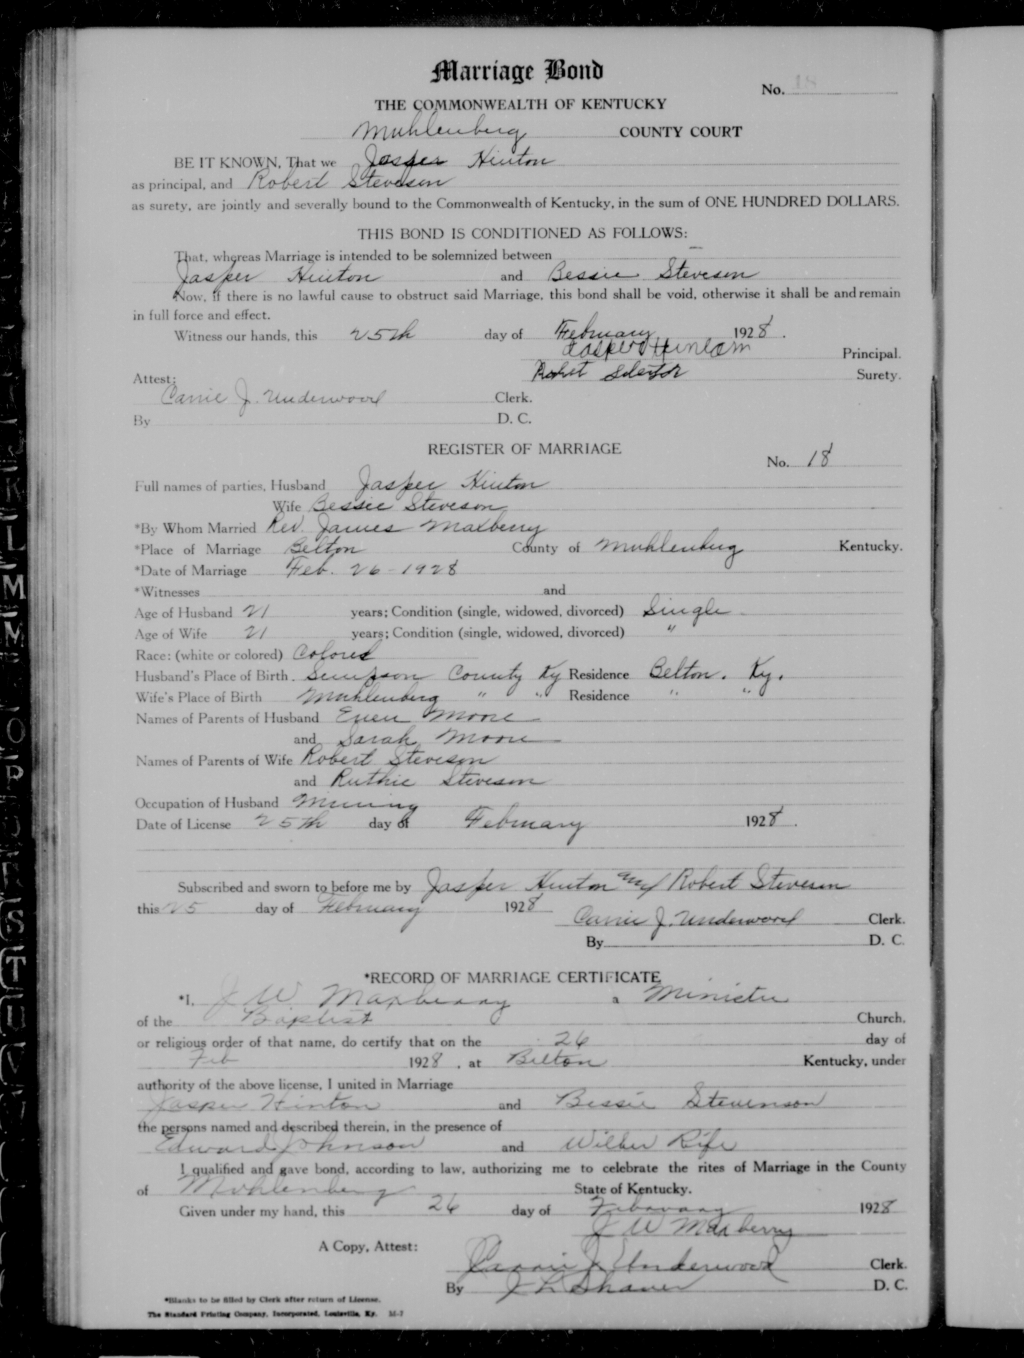 Marriage Bond
No. 18
THE COMMONWEALTH OF KENTUCKY
Muhlenberg COUNTY COURT
BE IT KNOWN, That we Jasper Hinton
as principal, and Robert Steveson
as surety, are jointly and severally bound to the Commonwealth of Kentucky, in the sum of ONE HUNDRED DOLLARS.
THIS BOND IS CONDITIONED AS FOLLOWS:
That, whereas Marriage is intended to be solemnized between
Jasper Hinton and Bessie Steveson
Now, if there is no lawful cause to obstruct said Marriage, this bond shall be void, otherwise it shall be and remain
in full force and effect.
Witness our hands, this 25th day of February 1928.
Jasper Principal.
Surety.
Attest:
Carrie J. Underwood Clerk.
By D. C.
REGISTER OF MARRIAGE
No. 18
Full names of parties, Husband Jasper Hinton
Wife Bessie Steveson
*By Whom Married Rev. James Maxberry
*Place of Marriage Belton County of Muhlenberg Kentucky.
*Date of Marriage Feb. 26-1928
*Witnesses and
Age of Husband 21 years; Condition (single, widowed, divorced) Single
Age of Wife 21 years; Condition (single, widowed, divorced) "
Race: (white or colored) Colored
Husband's Place of Birth Simpson County Ky Residence Belton. Ky.
Wife's Place of Birth Muhlenberg " " Residence " "
Names of Parents of Husband Moore
and Sarah Moore
Names of Parents of Wife Robert Steveson
and Ruthie Steveson
Occupation of Husband Mining
Date of License 25th day of February 1928.
Subscribed and sworn to before me by Jasper Hinton and Robert Steveson
this 25 day of February 1928
Carrie J. Underwood Clerk.
By D. C.
*RECORD OF MARRIAGE CERTIFICATE
*I, J W Maxberry a Minister
of the Baptist Church,
or religious order of that name, do certify that on the 26 day of
Feb 1928, at Belton Kentucky, under
authority of the above license, I united in Marriage
Jasper Hinton and Bessie Stevenson
the persons named and described therein, in the presence of
Edward Johnson and Wilber Rife
I qualified and gave bond, according to law, authorizing me to celebrate the rites of Marriage in the County
of Muhlenberg State of Kentucky.
Given under my hand, this 26 day of Febuary 1928
J W Maxberry
A Copy, Attest:
Carrie J. Underwood Clerk.
By J L Shaver D. C.
*Blanks to be filled by Clerk after return of License.
The Standard Printing Company, Incorporated, Louisville, Ky.